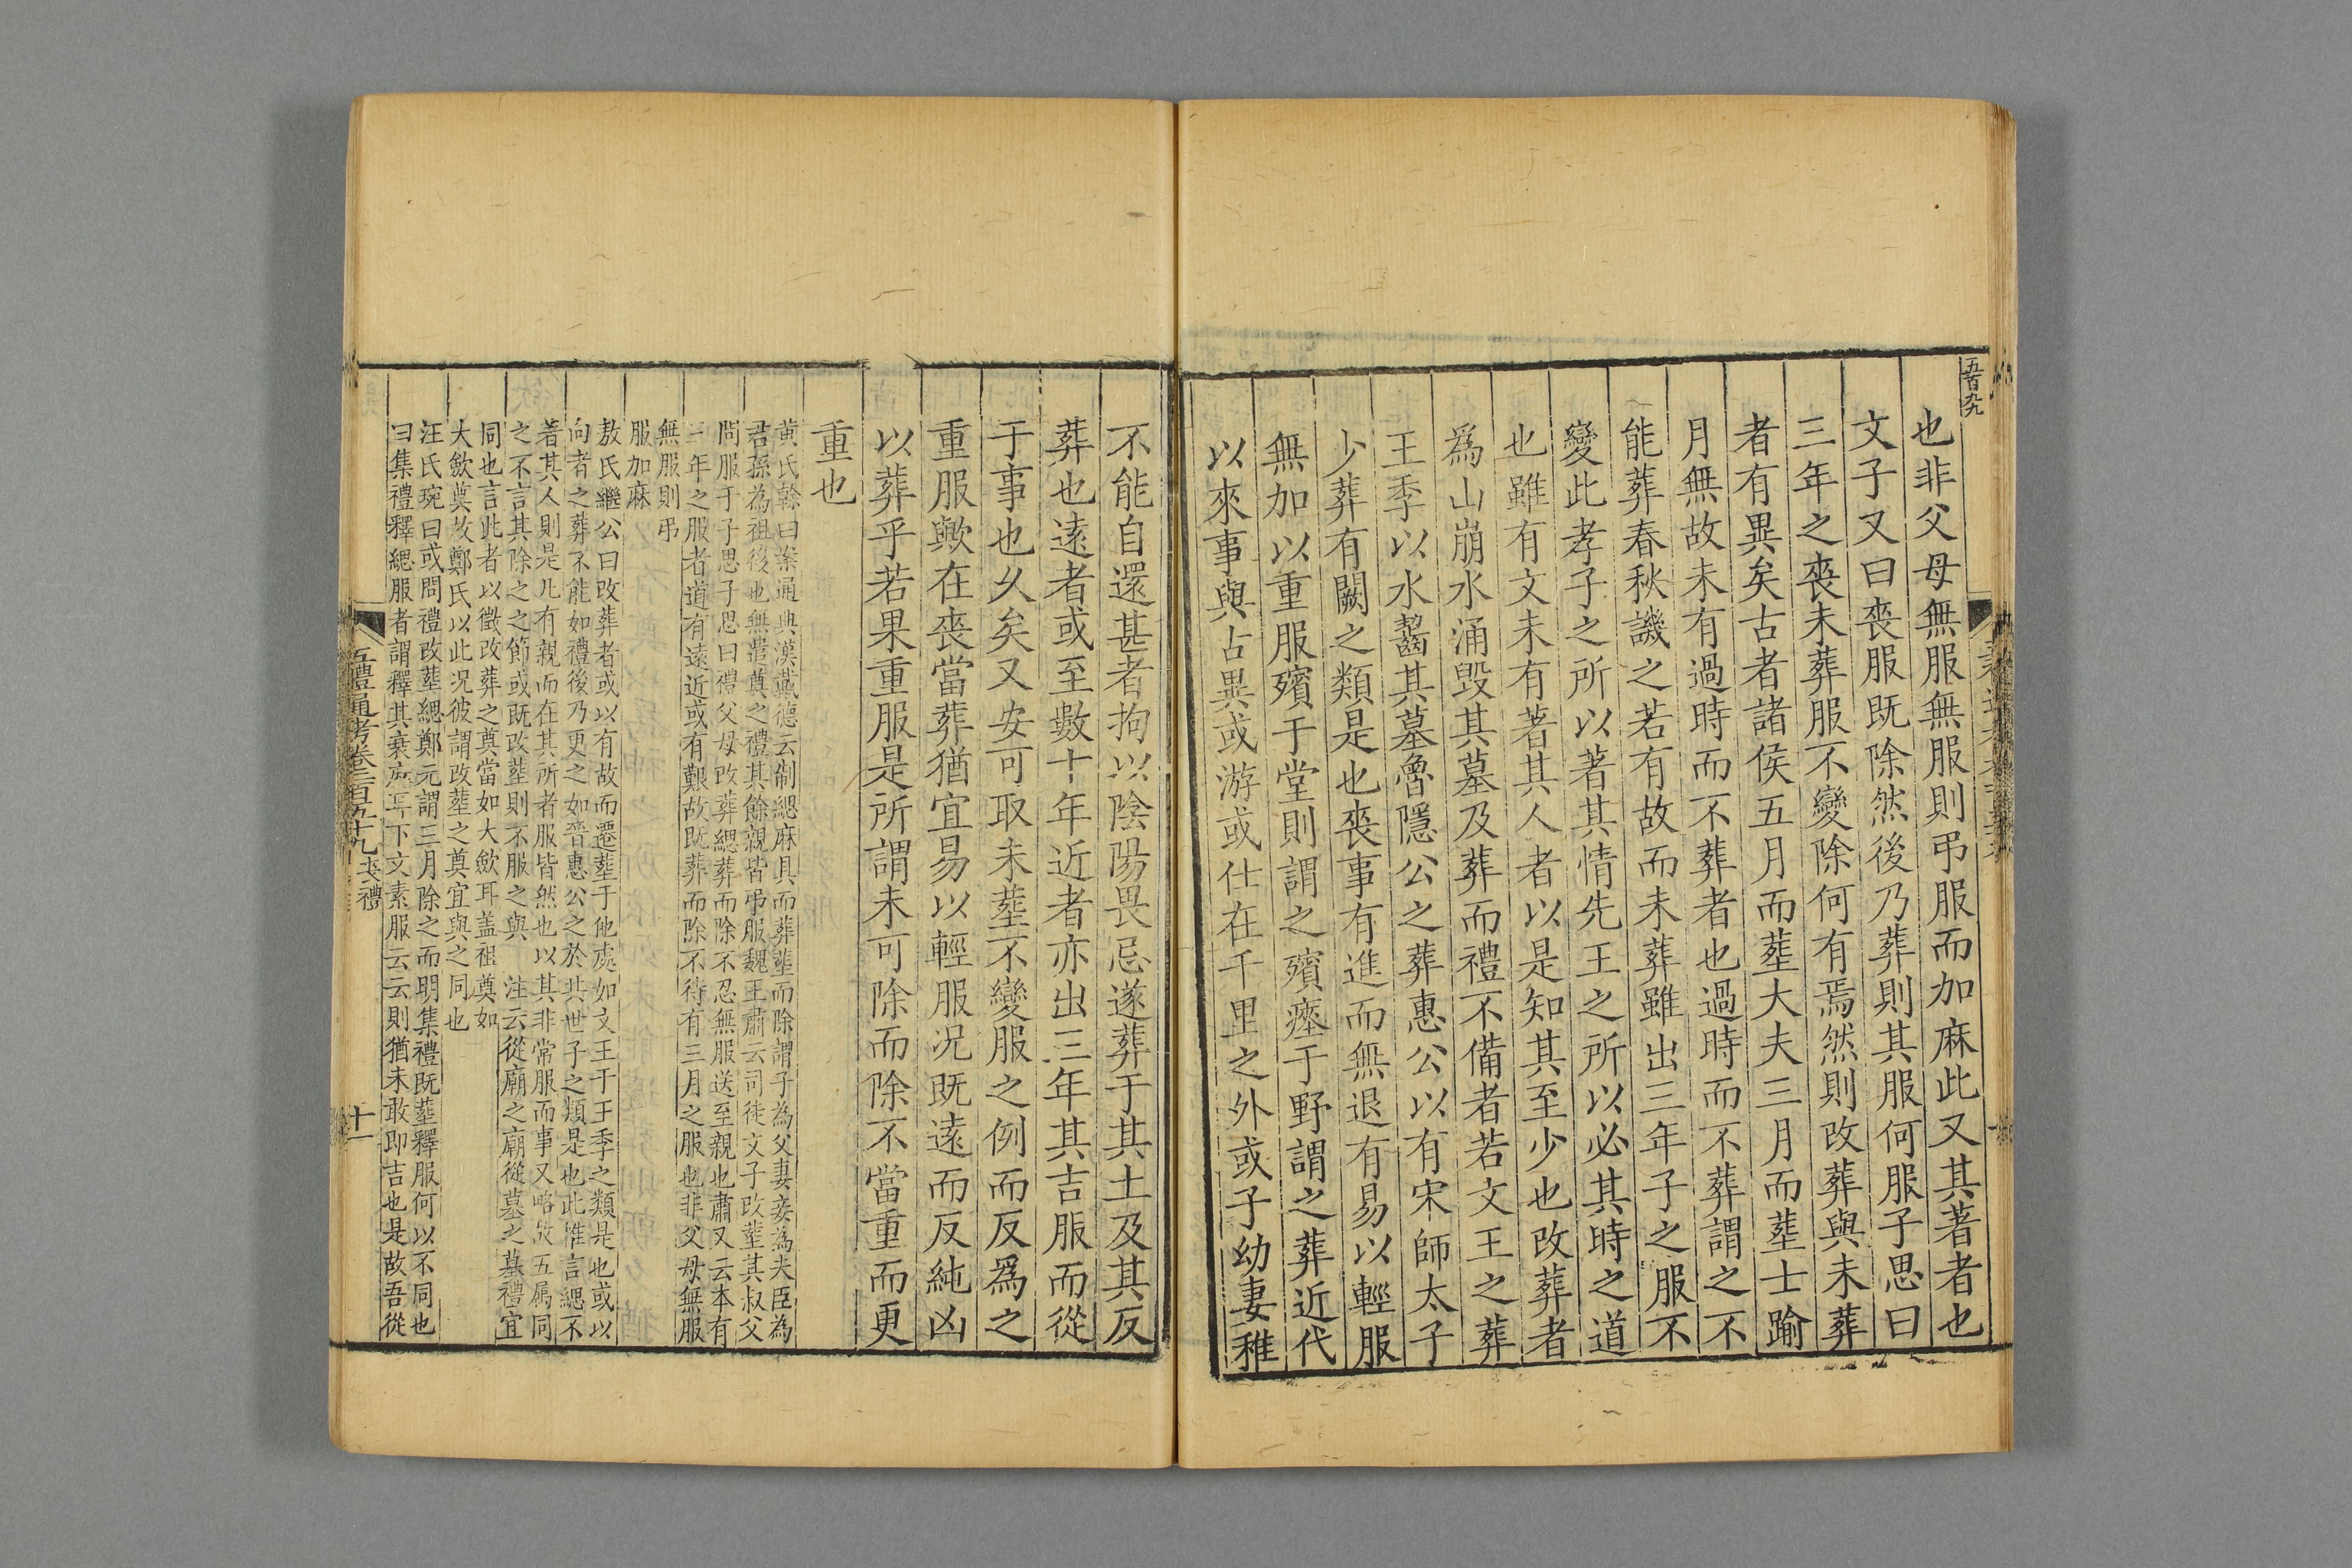 也非父母無服無服則弔服而加麻此又其著者也
文子又曰喪服既除然後乃葬則其服何服子思曰
三年之喪未葬服不變除何有焉然則改葬與未葬
者有異矣古者諸侯五月而塟大夫三月而塟士踰
月無故未有過時而不葬者也過時而不葬謂之不
能葬春秋譏之若有故而未葬雖出三年子之服不
變此孝子之所以著其情先王之所以必其時之道
也雖有文未有著其人者以是知其至少也改葬者
爲山崩水涌毁其墓及葬而禮不備者若文王之葬
王季以水齧其墓魯隱公之葬惠公以有宋師太子
少葬有闕之類是也喪事有進而無退有易以輕服
無加以重服殯于堂則謂之殯瘞于野謂之葬近代
以來事與古異或游或仕在千里之外或子幼妻稚
不能自還甚者拘以陰陽畏忌遂葬于其土及其反
葬也遠者或至數十年近者亦出三年其吉服而從
于事也久矣又安可取未塟不變服之例而反爲之
重服歟在喪當葬猶宜易以輕服况既遠而反純凶
以葬乎若果重服是所謂未可除而除不當重而更
重也
黄氏榦曰案通典漢戴德云制緦麻具而葬塟而除謂子為父妻妾為夫臣為
君孫為祖後也無遣奠之禮其餘親皆弔服魏王肅云司徒文子改塟其叔父
問服于子思子思曰禮父母改葬緦葬而除不忍無服送至親也肅又云本有
三年之服者道有遠近或有艱故既葬而除不待有三月之服也非父母無服
無服則弔
服加麻
敖氏繼公曰改葬者或以有故而遷塟于他處如文王于王季之類是也或以
向者之葬不能如禮後乃更之如晉惠公之於共世子之類是也此惟言緦不
著其人則是凡有親而在其所者服皆然也以其非常服而事又略故五属同
之不言其除之之節或既改塟則不服之與　注云從廟之廟從墓之墓禮宜
同也言此者以徵改葬之奠當如大斂耳盖祖奠如
大斂奠故鄭氏以此况彼謂改塟之奠宜與之同也
汪氏琬曰或問禮改塟緦鄭元謂三月除之而明集禮既塟釋服何以不同也
曰集禮釋緦服者謂釋其衰麻耳下文素服云云則猶未敢即吉也是故吾從
五禮通考卷二百五十九 喪禮
十一